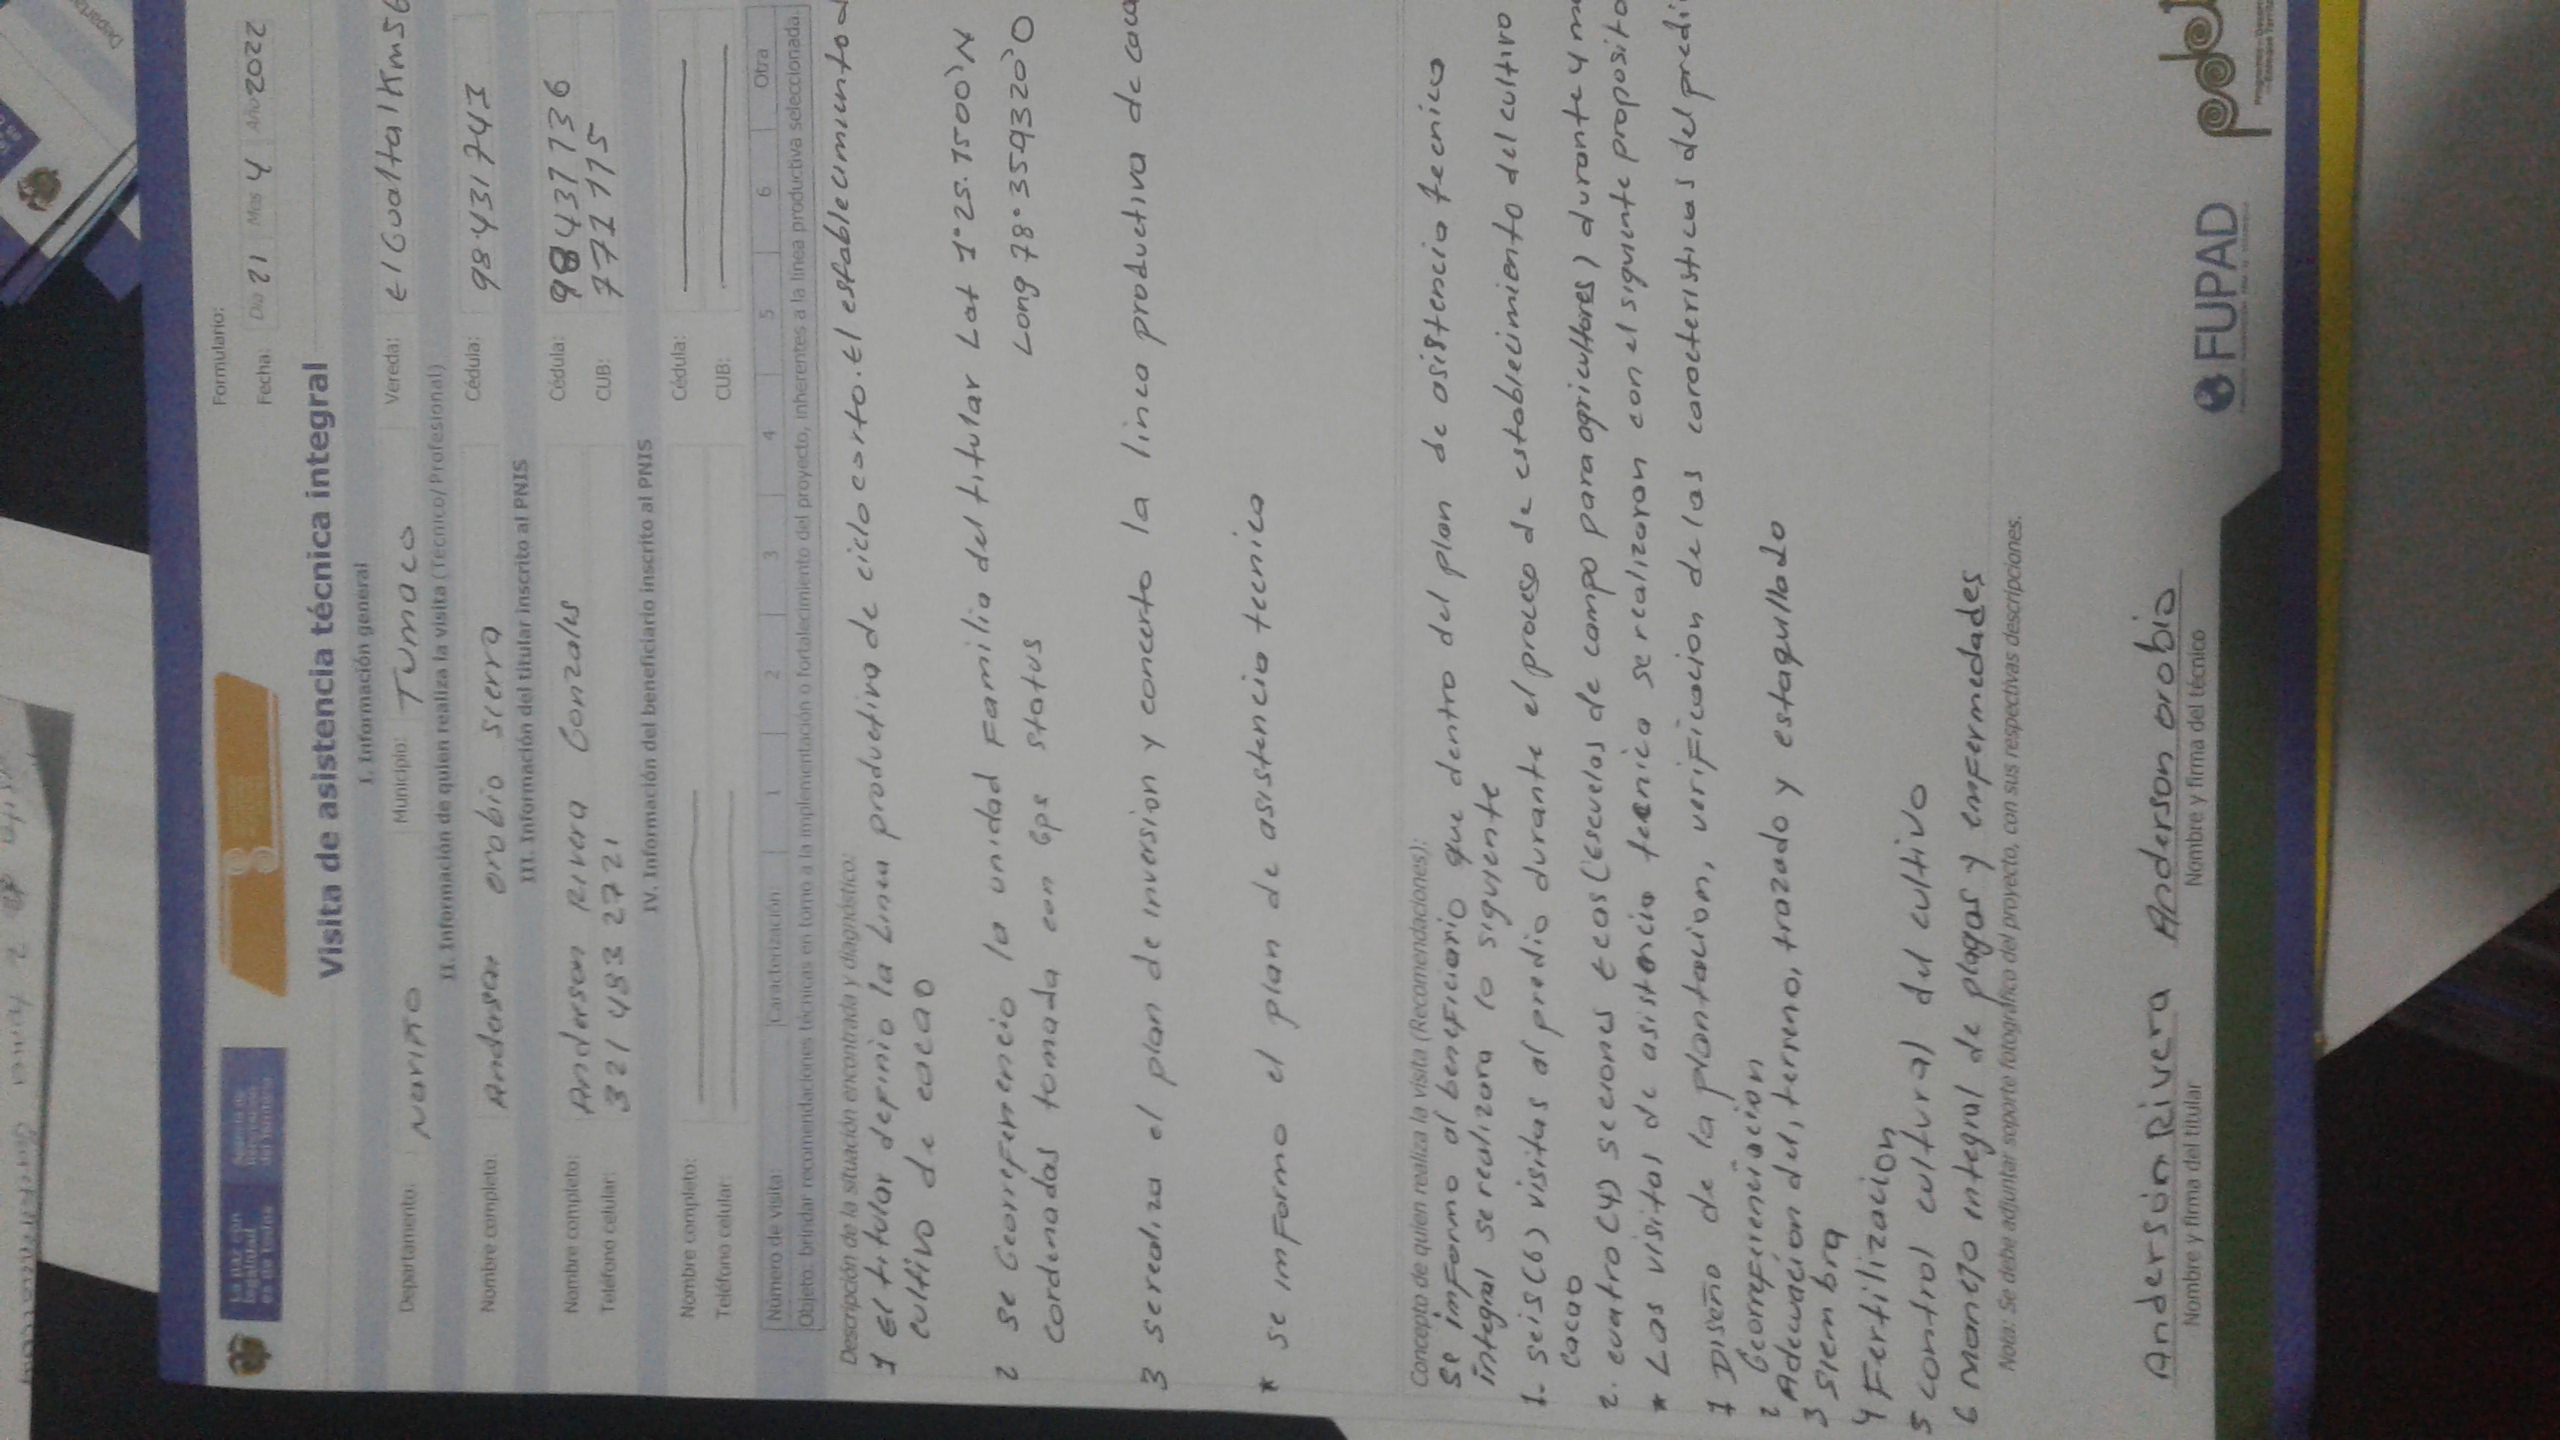 La paz con
legalidad
es de todos
Formulario:
Fecha: Dia 21 Mes 4 Año 2022
Visita de asistencia técnica integral
I. Información general
Departamento: Nariño Municipio: Tumaco Vereda: el Gualtal Km 56
II. Información de quien realiza la visita (Técnico/Profesional)
Nombre completo: Anderson orobio sierra Cédula: 98431743
III. Información del titular inscrito al PNIS
Nombre completo: Anderson Rivera Gonzales Cédula: 98437736
Teléfono celular: 321 483 2721 CUB: 771715
IV. Información del beneficiario inscrito al PNIS
Nombre completo: Cédula:
Teléfono celular: CUB:
Número de visita: Caracterización 1 2 3 4 5 6 Otra
Objeto: brindar recomendaciones técnicas en torno a la implementación o fortalecimiento del proyecto, inherentes a la línea productiva seleccionada.
Descripción de la situación encontrada y diagnóstico:
1 El titular definio la Linea productiva de ciclo corto. El establecimiento d
cultivo de cacao
2 se Georreferencio la unidad Familia del titular Lat 1°25.1500'N
cordenadas tomada con Gps status Long 78°359320'O
3 se realiza el plan de inversion y concerto la linea productiva de caca
* se informo el plan de asistencia tecnica
Concepto de quien realiza la visita (Recomendaciones):
se informo al beneficiario que dentro del plan de asistencia tecnico
integral se realizara lo siguiente
1. seis (6) visitas al predio durante el proceso de establecimiento del cultivo
cacao
2. cuatro (4) seciones ecas (escuelas de campo para agricultores) durante y m
* Las visitas de asistencia tecnica se realizaran con el siguiente proposito
1 Diseño de la plantacion, verificacion de las caracteristicas del predi
Georreferenciacion
2 Adecuacion del, terreno, trazado y estaquillado
3 siembra
4 Fertilizacion
5 control cultural del cultivo
6 manejo integral de plagas y enfermedades
Nota: Se debe adjuntar soporte fotográfico del proyecto, con sus respectivas descripciones.
Anderson Rivera Anderson orobio
Nombre y firma del titular Nombre y firma del técnico
FUPAD